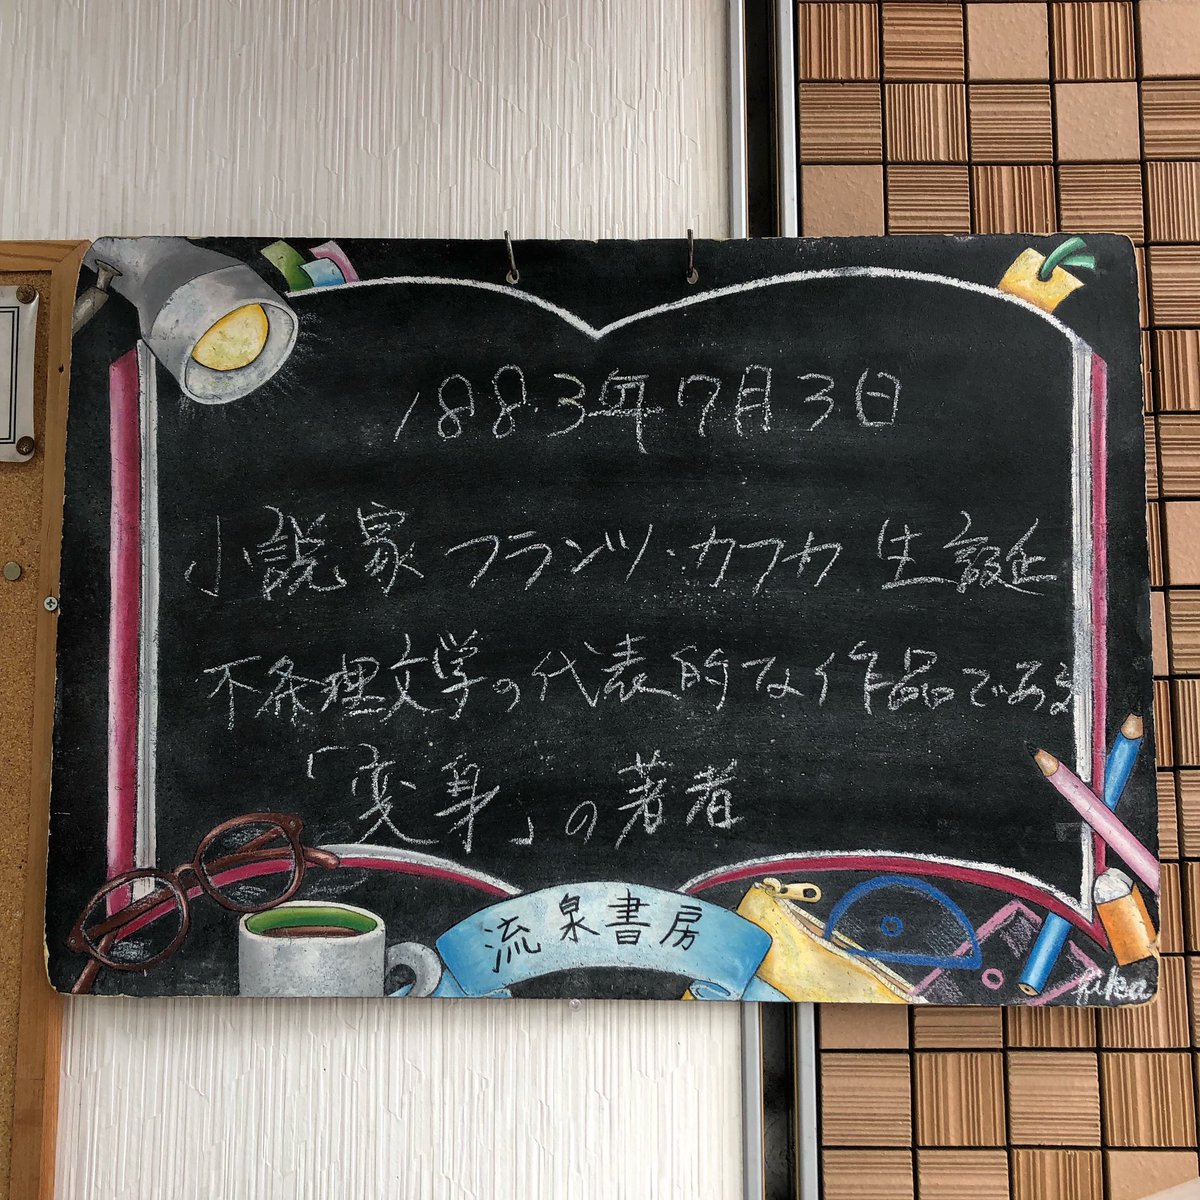 1883年7月3日
小説家 フランツ・カフカ 生誕
不条理文学の代表的な作品である
「変身」の著者
流泉書房
fuka